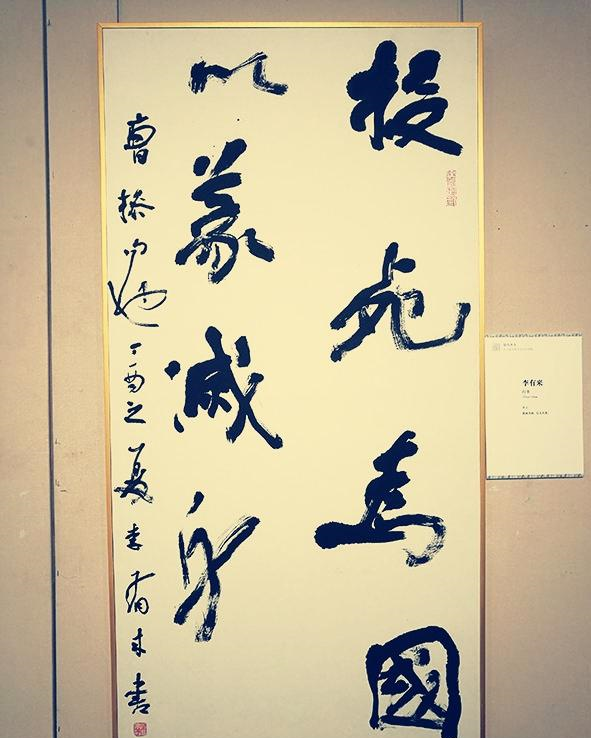 投死為國
以義滅身
曹操 丁酉之夏李有来書
李有来